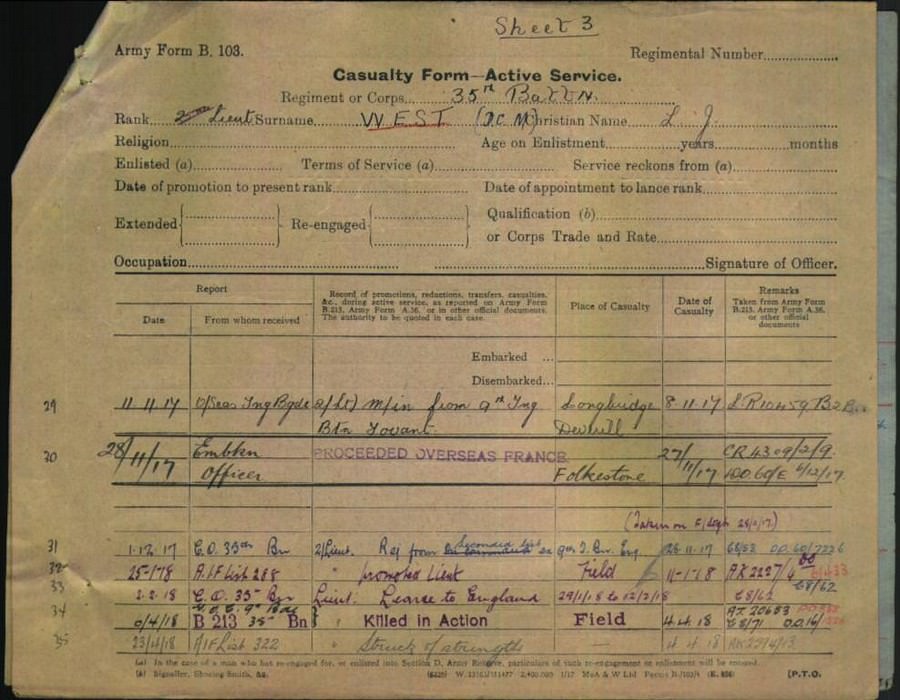 Sheet 3
Army Form B. 103.
Regimental Number
Casualty Form—Active Service.
Regiment or Corps 35th Battn.
Rank 2nd Lieut Surname WEST (D.C.M.) Christian Name L. J.
Religion Age on Enlistment years months
Enlisted (a) Terms of Service (a) Service reckons from (a)
Date of promotion to present rank Date of appointment to lance rank
Extended Re-engaged Qualification (b)
or Corps Trade and Rate
Occupation Signature of Officer.
Report
Date
From whom received
Record of promotions, reductions, transfers, casualties,
&c., during active service, as reported on Army Form
B.213, Army Form A.36, or in other official documents.
The authority to be quoted in each case.
Place of Casualty
Date of
Casualty
Remarks
Taken from Army Form
B.213, Army Form A.36,
or other official
documents
Embarked ...
Disembarked...
29 11.11.17 O/Seas Tng Bgde 2/Lt) M/in from 9th Tng Longbridge 8.11.17
Btn Fovant. Deverill
30 28/11/17 Embkn Officer PROCEEDED OVERSEAS FRANCE. Folkestone 27/11/17 CR 4309/2/9.
6/12/17.
31 1.12.17 C.O. 35th Bn 2/Lieut. from 28.11.17
32 25-1-18 A.I.F List 288 " promoted Lieut Field 11-1-18
33 2.2.18 C.O. 35th Bn Lieut. Leave to England 29/1/18 to 12/2/18 E8/62
34 B 213 35th Bn " Killed in Action Field 4.4.18 E8/71
35 23/4/18 A.I.F List 322 " Struck off strength — 4 4 18
(a) In the case of a man who has re-engaged for, or enlisted into Section D, Army Reserve, particulars of such re-engagement or enlistment will be entered.
(b) Signaller, Shoeing Smith, &c.
[P.T.O.